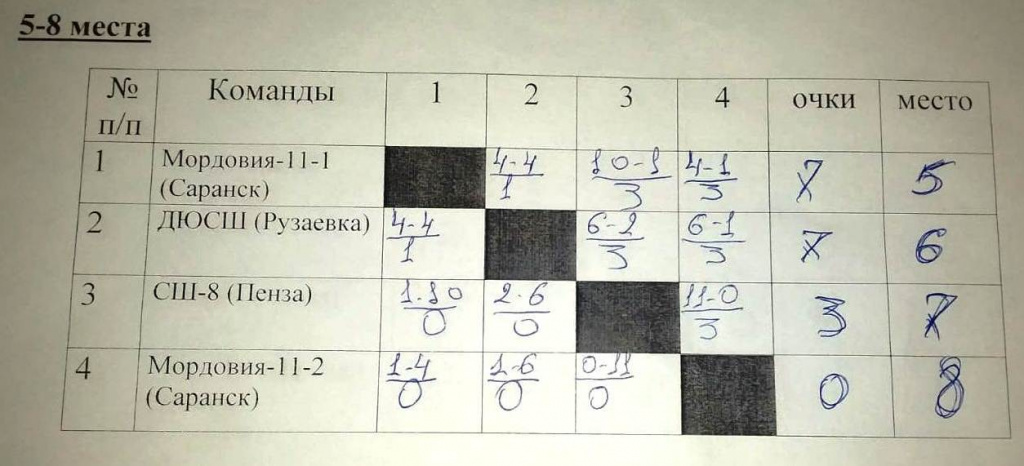 5-8 места
№ п/п Команды 1 2 3 4 очки место
1 Мордовия-11-1 (Саранск) 4-4/1 10-1/3 4-1/3 7 5
2 ДЮСШ (Рузаевка) 4-4/1 6-2/3 6-1/3 7 6
3 СШ-8 (Пенза) 1-10/0 2-6/0 11-0/3 3 7
4 Мордовия-11-2 (Саранск) 1-4/0 1-6/0 0-11/0 0 8